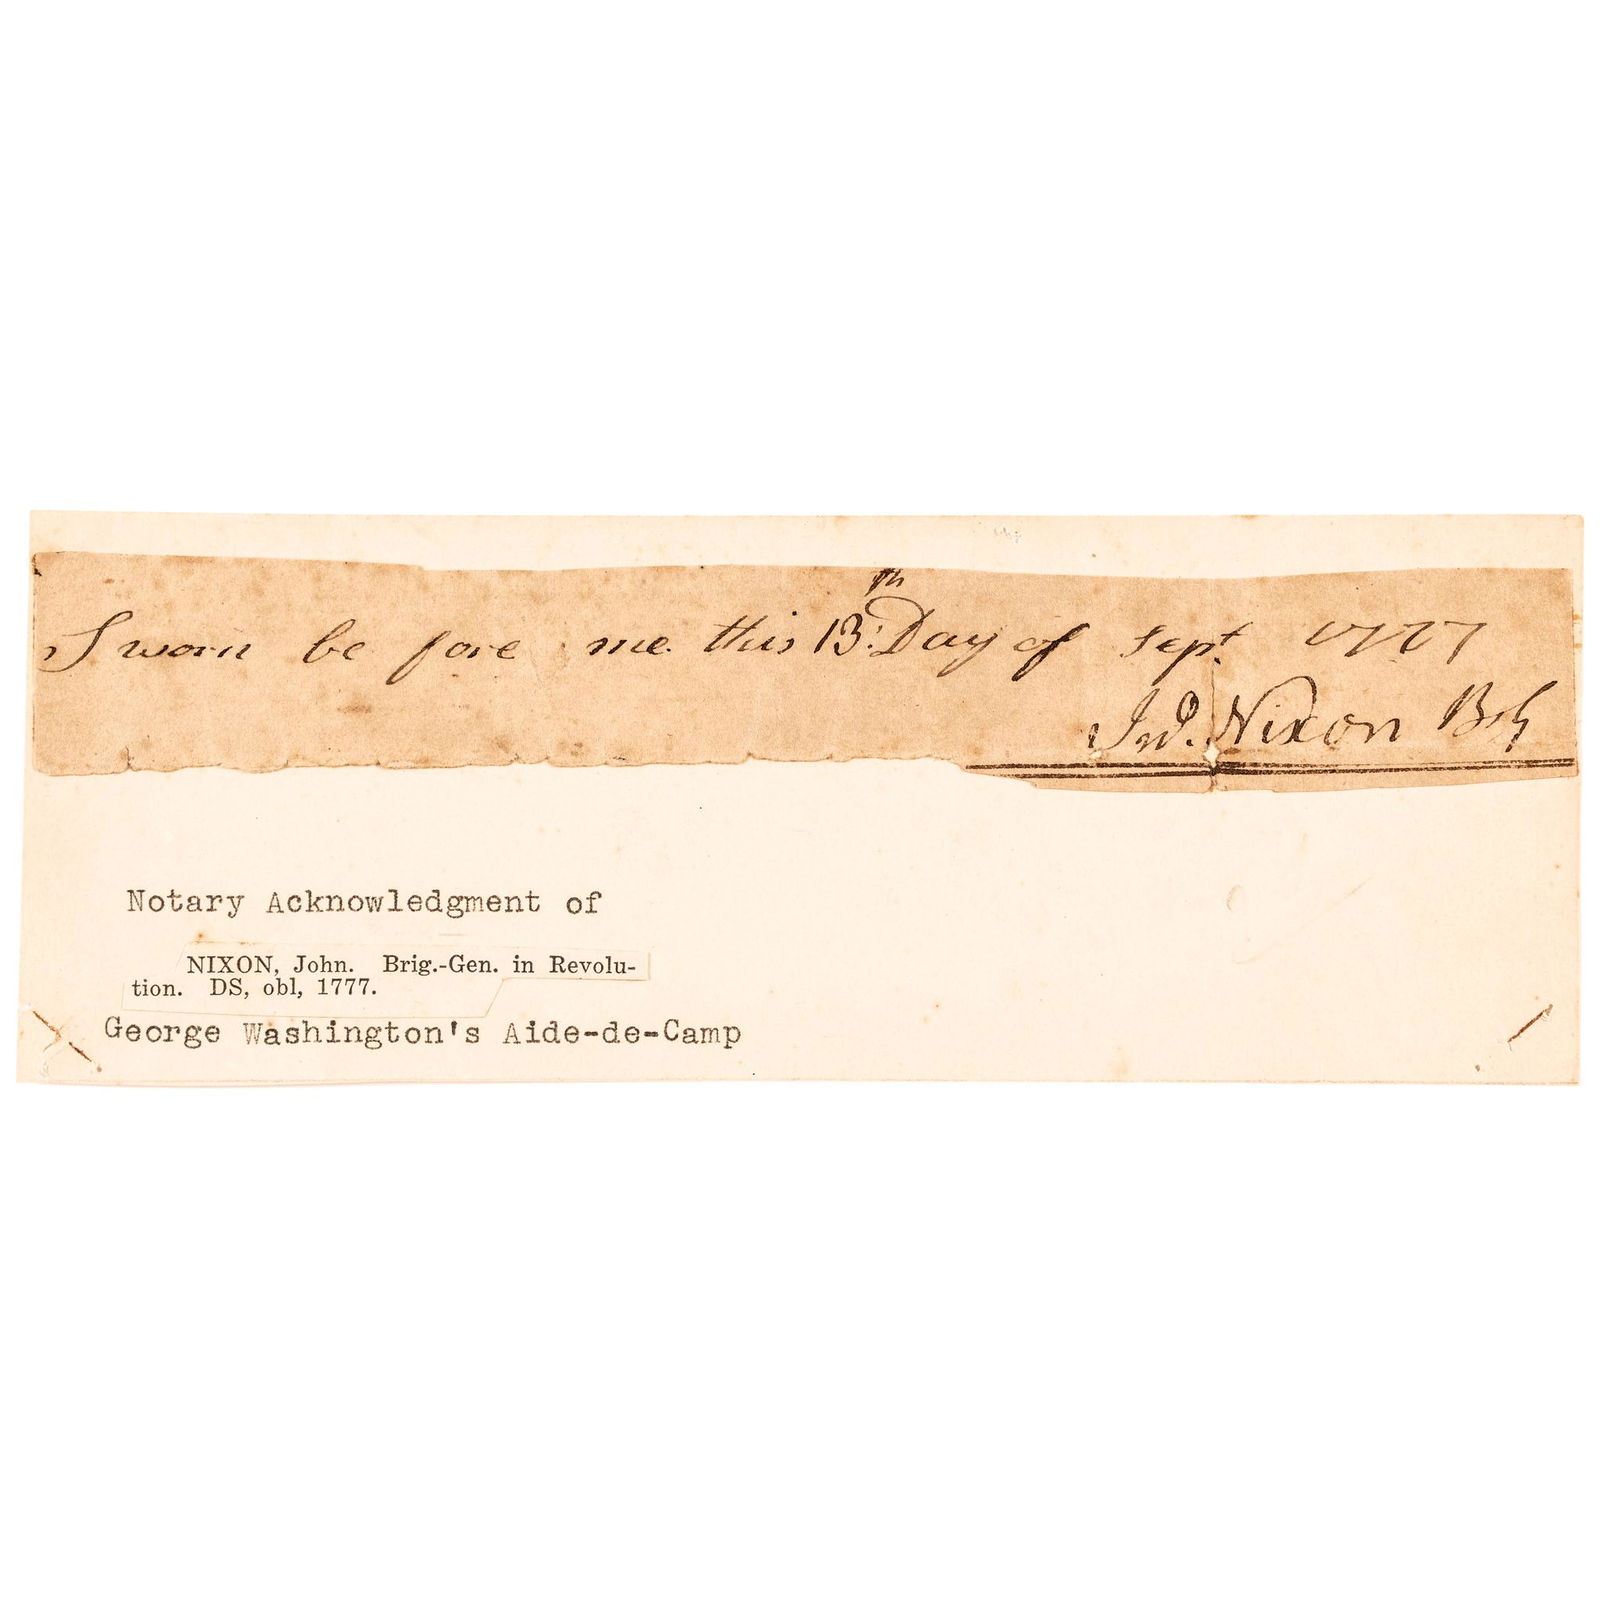 Sworn be fore me this 13th Day of Sept 1777
Jno. Nixon BG
Notary Acknowledgment of
NIXON, John. Brig.-Gen. in Revolu-
tion. DS, obl, 1777.
George Washington's Aide-de-Camp